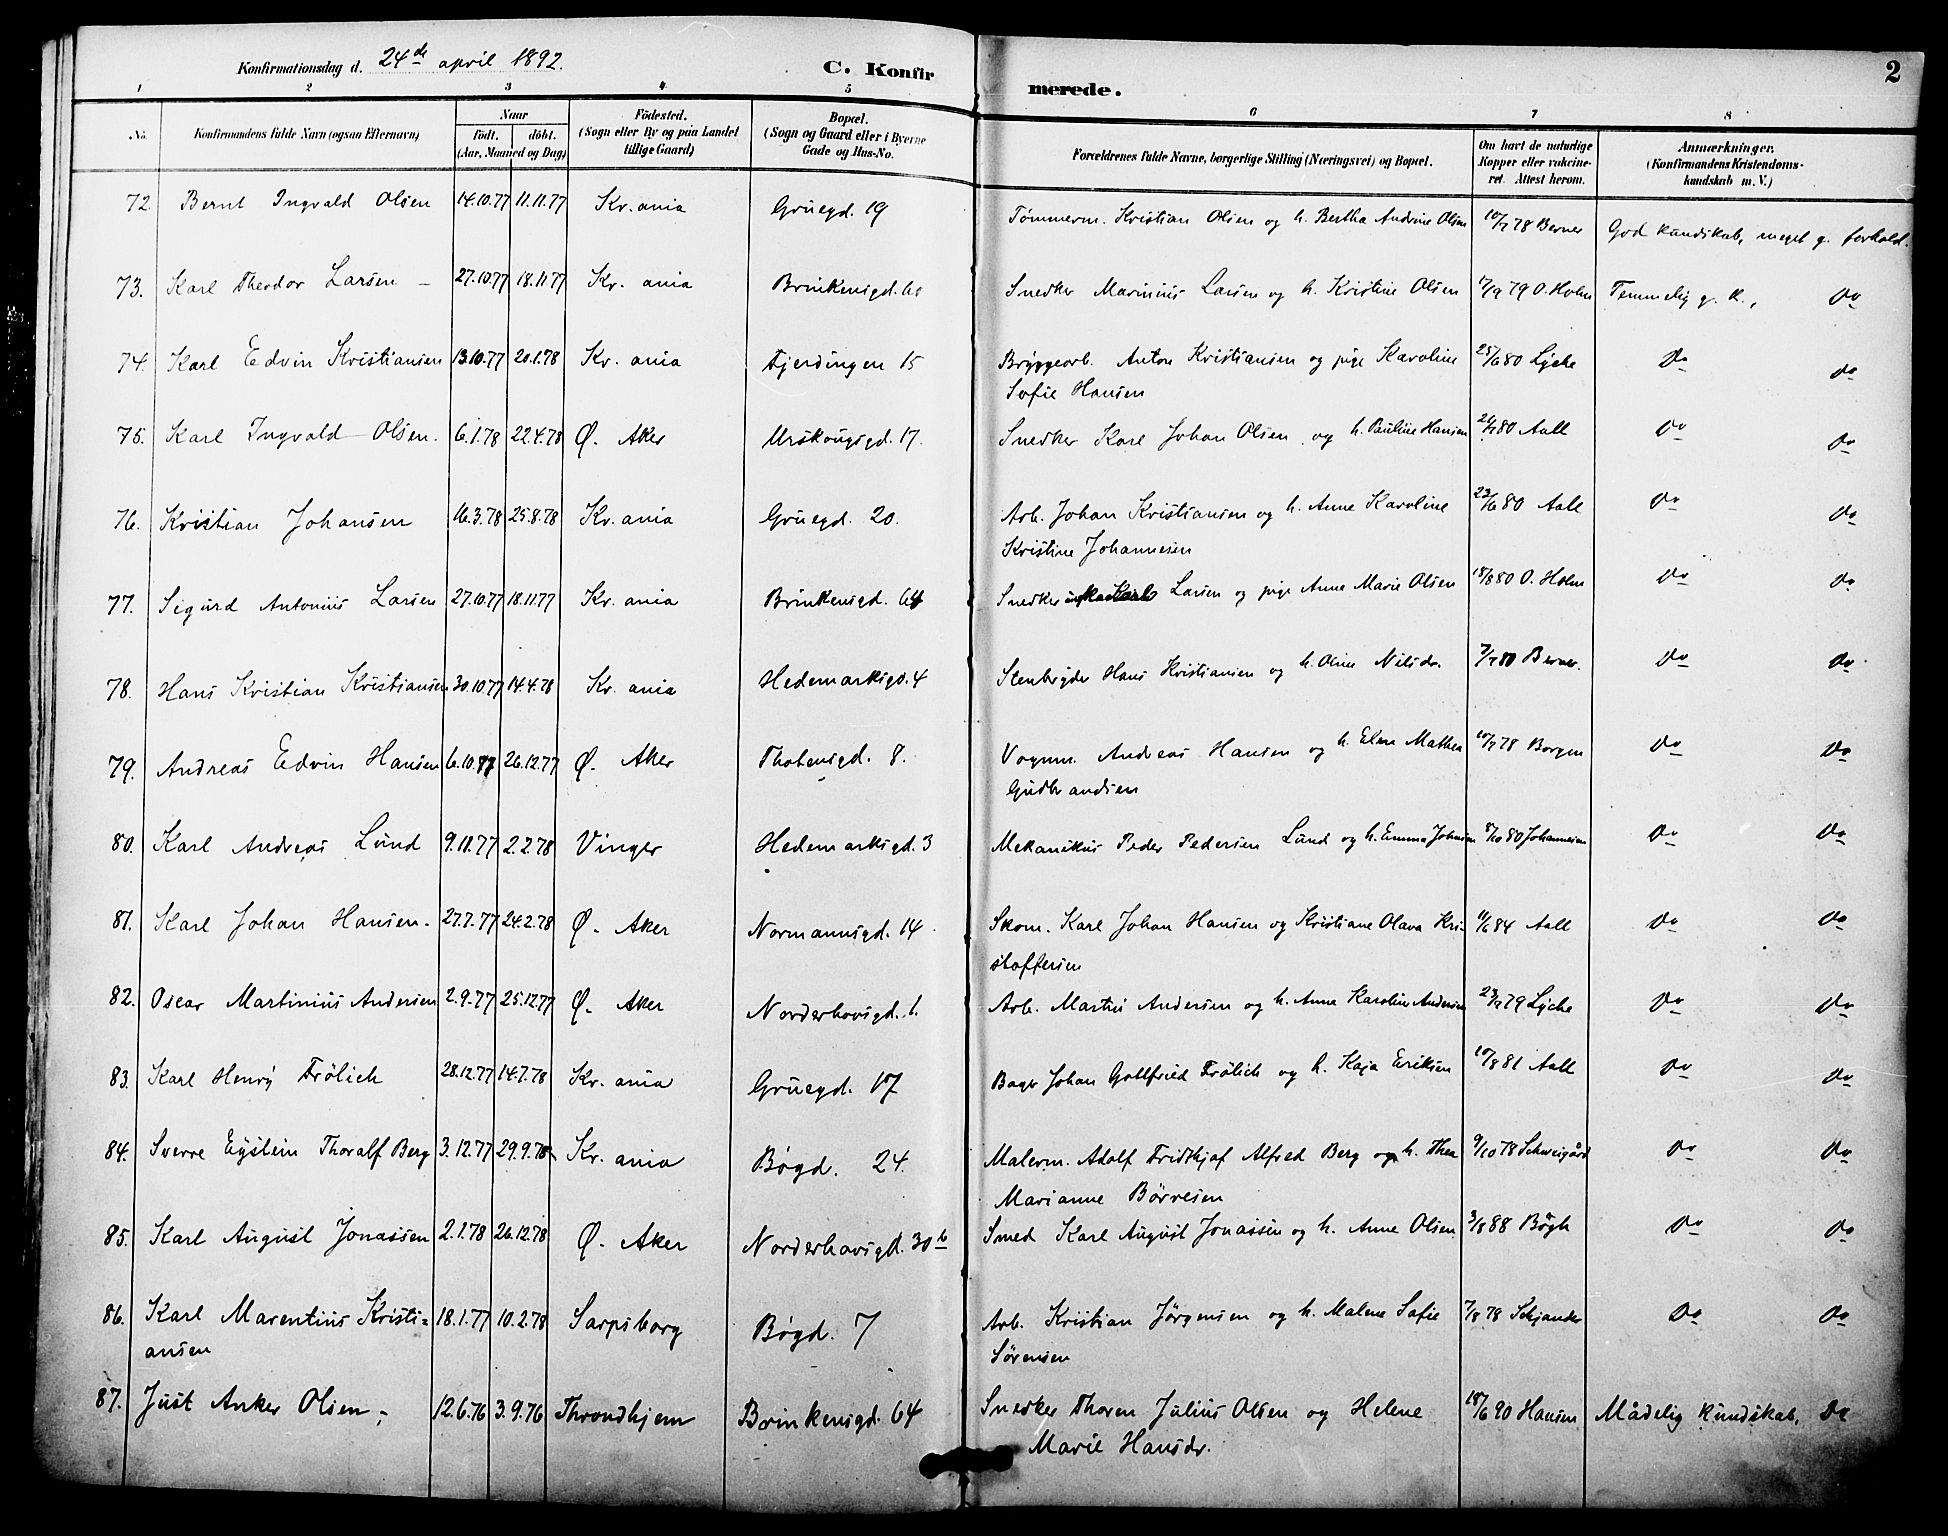 Konfirmationsdag d. 24de april 1892. C. Konfirmerede. 2
1 2 3 4 5 6 7 8
No. Konfirmandens fulde Navn (ogsaa Efternavn) Naar födt. döbt. (Aar, Maaned og Dag) Födested. (Sogn eller By og paa Landet tillige Gaard) Bopæl. (Sogn og Gaard eller i Byerne Gade og Hus-No. Forældrenes fulde Navne, borgerlige Stilling (Næringsvei) og Bopæl. Om havt de naturlige Kopper eller vakcineret. Attest herom. Anmærkninger. (Konfirmandens Kristendomskundskab m. V.)
72. Bernt Ingvald Olsen 14.10.77 11.11.77 Kr. ania Gruegd. 19 Tømmerm. Kristian Olsen og h. Bertha Andrine Olsen 10/7 78 Berner God kundskab, meget g. forhold.
73. Karl Theodor Larsen – 27.10.77 18.11.77 Kr. ania Brinkensgd. 60 Snedker Marinius Larsen og h. Kristine Olsen 17/9 79 O. Holm Temmelig g. k., Do
74. Karl Edvin Kristiansen 13.10.77 20.1.78 Kr. ania Fjerdingen 15 Bryggearb. Anton Kristiansen og pige Karoline 25/6 80 Lyche Do Do
Sofie Hansen
75. Karl Ingvald Olsen. 6.1.78 22.4.78 Ø. Aker Urskougsgd. 17. Snedker Karl Johan Olsen og h. Pauline Hansen 80 Aall Do Do
76. Kristian Johansen 16.3.78 25.8.78 Kr. ania Gruegd. 20. Arb. Johan Kristiansen og h. Anne Karoline 23/6 80 Aall Do Do
Kristine Johannesen
77. Sigurd Antonius Larsen 27.10.77 18.11.77 Kr. ania Brinkensgd. 64 Snedker Larsen og pige Anne Marie Olsen 18/8 80 O. Holm Do Do
78. Hans Kristian Kristiansen 30.10.77 14.4.78 Kr. ania Hedemarksgd. 4 Stenbryder Hans Kristiansen og h. Oline Nilsdr. 7/7 80 Berner. Do Do
79. Andreas Edvin Hansen 6.10.77 26.12.77 Ø. Aker Thotensgd. 8. Vognm. Andreas Hansen og h. Elen Mathea 10/7 78 Borgen Do Do
Gudbrandsen
80. Karl Andreas Lund 9.11.77 2.2.78 Vinger Hedemarksgd. 3 Mekanikus Peder Pedersen Lund og h. Emma Johnsen 8/10 80 Johannesen Do Do
81. Karl Johan Hansen. 27.7.77 24.2.78 Ø. Aker Normannsgd. 14 Skom. Karl Johan Hansen og Kristiane Olava Kri- 11/6 84 Aall Do Do
stoffersen
82. Oscar Martinius Andersen 2.9.77 25.12.77 Ø. Aker Norderhovsgd. 6. Arb. Martin Andersen og h. Anna Karoline Andersen 79 Lyche Do Do
83. Karl Henry Frölich 28.12.77 14.7.78 Kr. ania Gruegd. 17 Bager Johan Gottfried Frölich og h. Kaja Eriksen 10/8 81 Aall Do Do
84. Sverre Eystein Thoralf Berg 3.12.77 29.9.78 Kr. ania Bøgd. 24. Malerm. Adolf Fridthjof Alfred Berg og h. Thea 9/10 78 Schweigård Do Do
Marianne Börresen
85. Karl August Jonassen 2.1.78 26.12.78 Ø. Aker Norderhovsgd. 30b Smed Karl August Jonassen og h. Anne Olsen 3/8 88 Bögh Do Do
86. Karl Marentius Kristi= 18.1.77 10.2.78 Sarpsborg Bøgd. 7 Arb. Kristian Jörgensen og h. Malene Sofie 7/8 78 Schjander Do Do
ansen Sörensen
87. Just Anker Olsen, 12.6.76 3.9.76 Throndhjem Brinkensgd. 64 Snedker Thoren Julius Olsen og Helene 18/6 90 Hansen Mådelig kundskab, Do
Marie Hansdr.